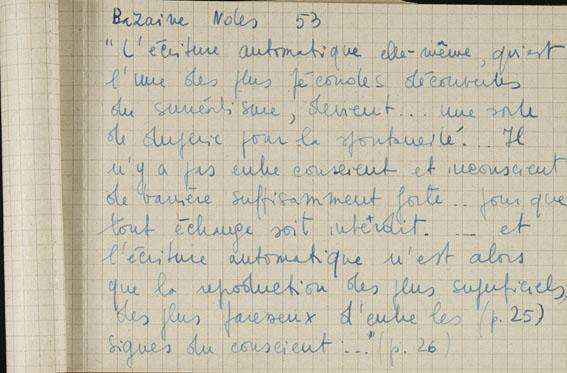 Bazaine Notes 53
"L'écriture automatique elle-même, qui est
l'une des plus fécondes découvertes
du surréalisme, devient... une sorte
de duperie pour la spontanéité... Il
n'y a pas entre conscient et inconscient
de barrière suffisamment forte... pour que
tout échange soit interdit. ... et
l'écriture automatique n'est alors
que la reproduction des plus superficiels,
des plus paresseux d'entre les (p. 25)
signes du conscient :..." (p. 26)